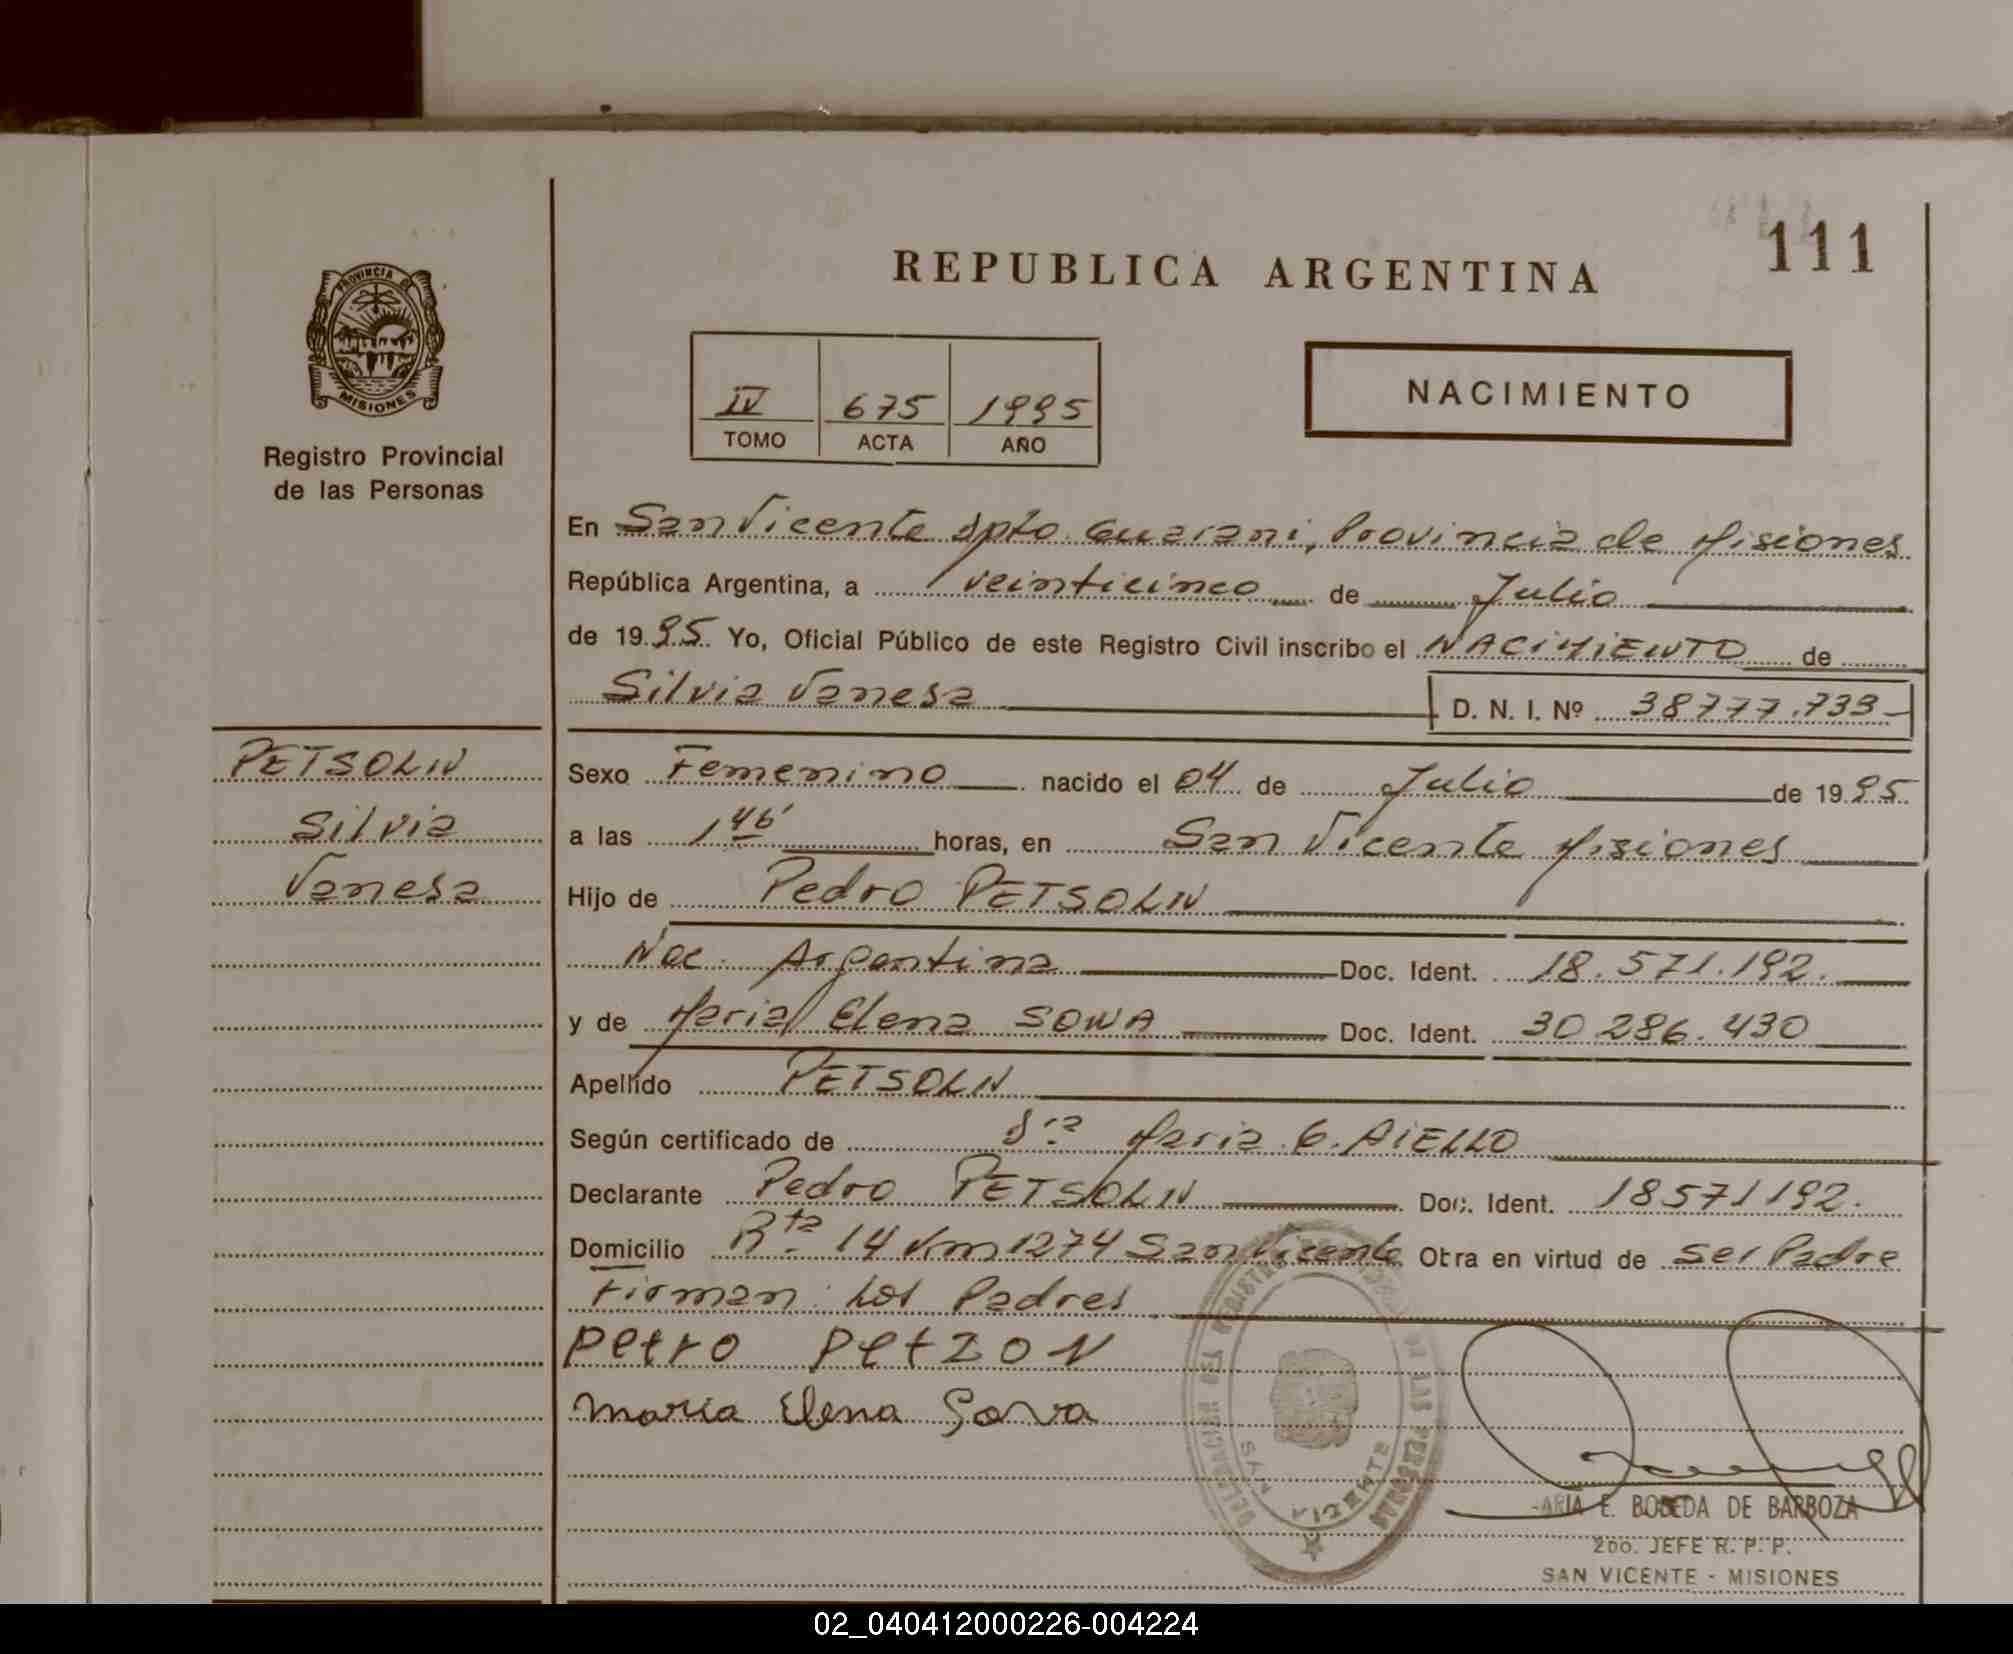 111
REPUBLICA ARGENTINA
PROVINCIA DE
MISIONES
Registro Provincial
de las Personas
IV 675 1995
TOMO ACTA AÑO
NACIMIENTO
En San Vicente Dpto. Guarani, Provincia de Misiones
República Argentina, a veinticinco de Julio
de 1995 Yo, Oficial Público de este Registro Civil inscribo el NACIMIENTO de
Silvia Vanesa D. N. I. Nº 38777.733
PETSOLN
Silvia
Vanesa
Sexo Femenino nacido el 04 de Julio de 1995
a las 1 46' horas, en San Vicente Misiones
Hijo de Pedro PETSOLN
Nac. Argentina Doc. Ident. 18.571.192.
y de Maria Elena SOWA Doc. Ident. 30.286.430
Apellido PETSOLN
Según certificado de Dra Maria G. AIELLO
Declarante Pedro PETSOLN Doc. Ident. 18571192.
Domicilio Rta. 14 Km 1274 San Vicente Obra en virtud de Ser Padre
Firman: Los Padres
Petro PetZON
Maria Elena Sova
DELEGACION DEL REGISTRO DE LAS PERSONAS
SAN VICENTE
ARIA E. BOBEDA DE BARBOZA
2DO. JEFE R. P. P.
SAN VICENTE - MISIONES
02_040412000226-004224